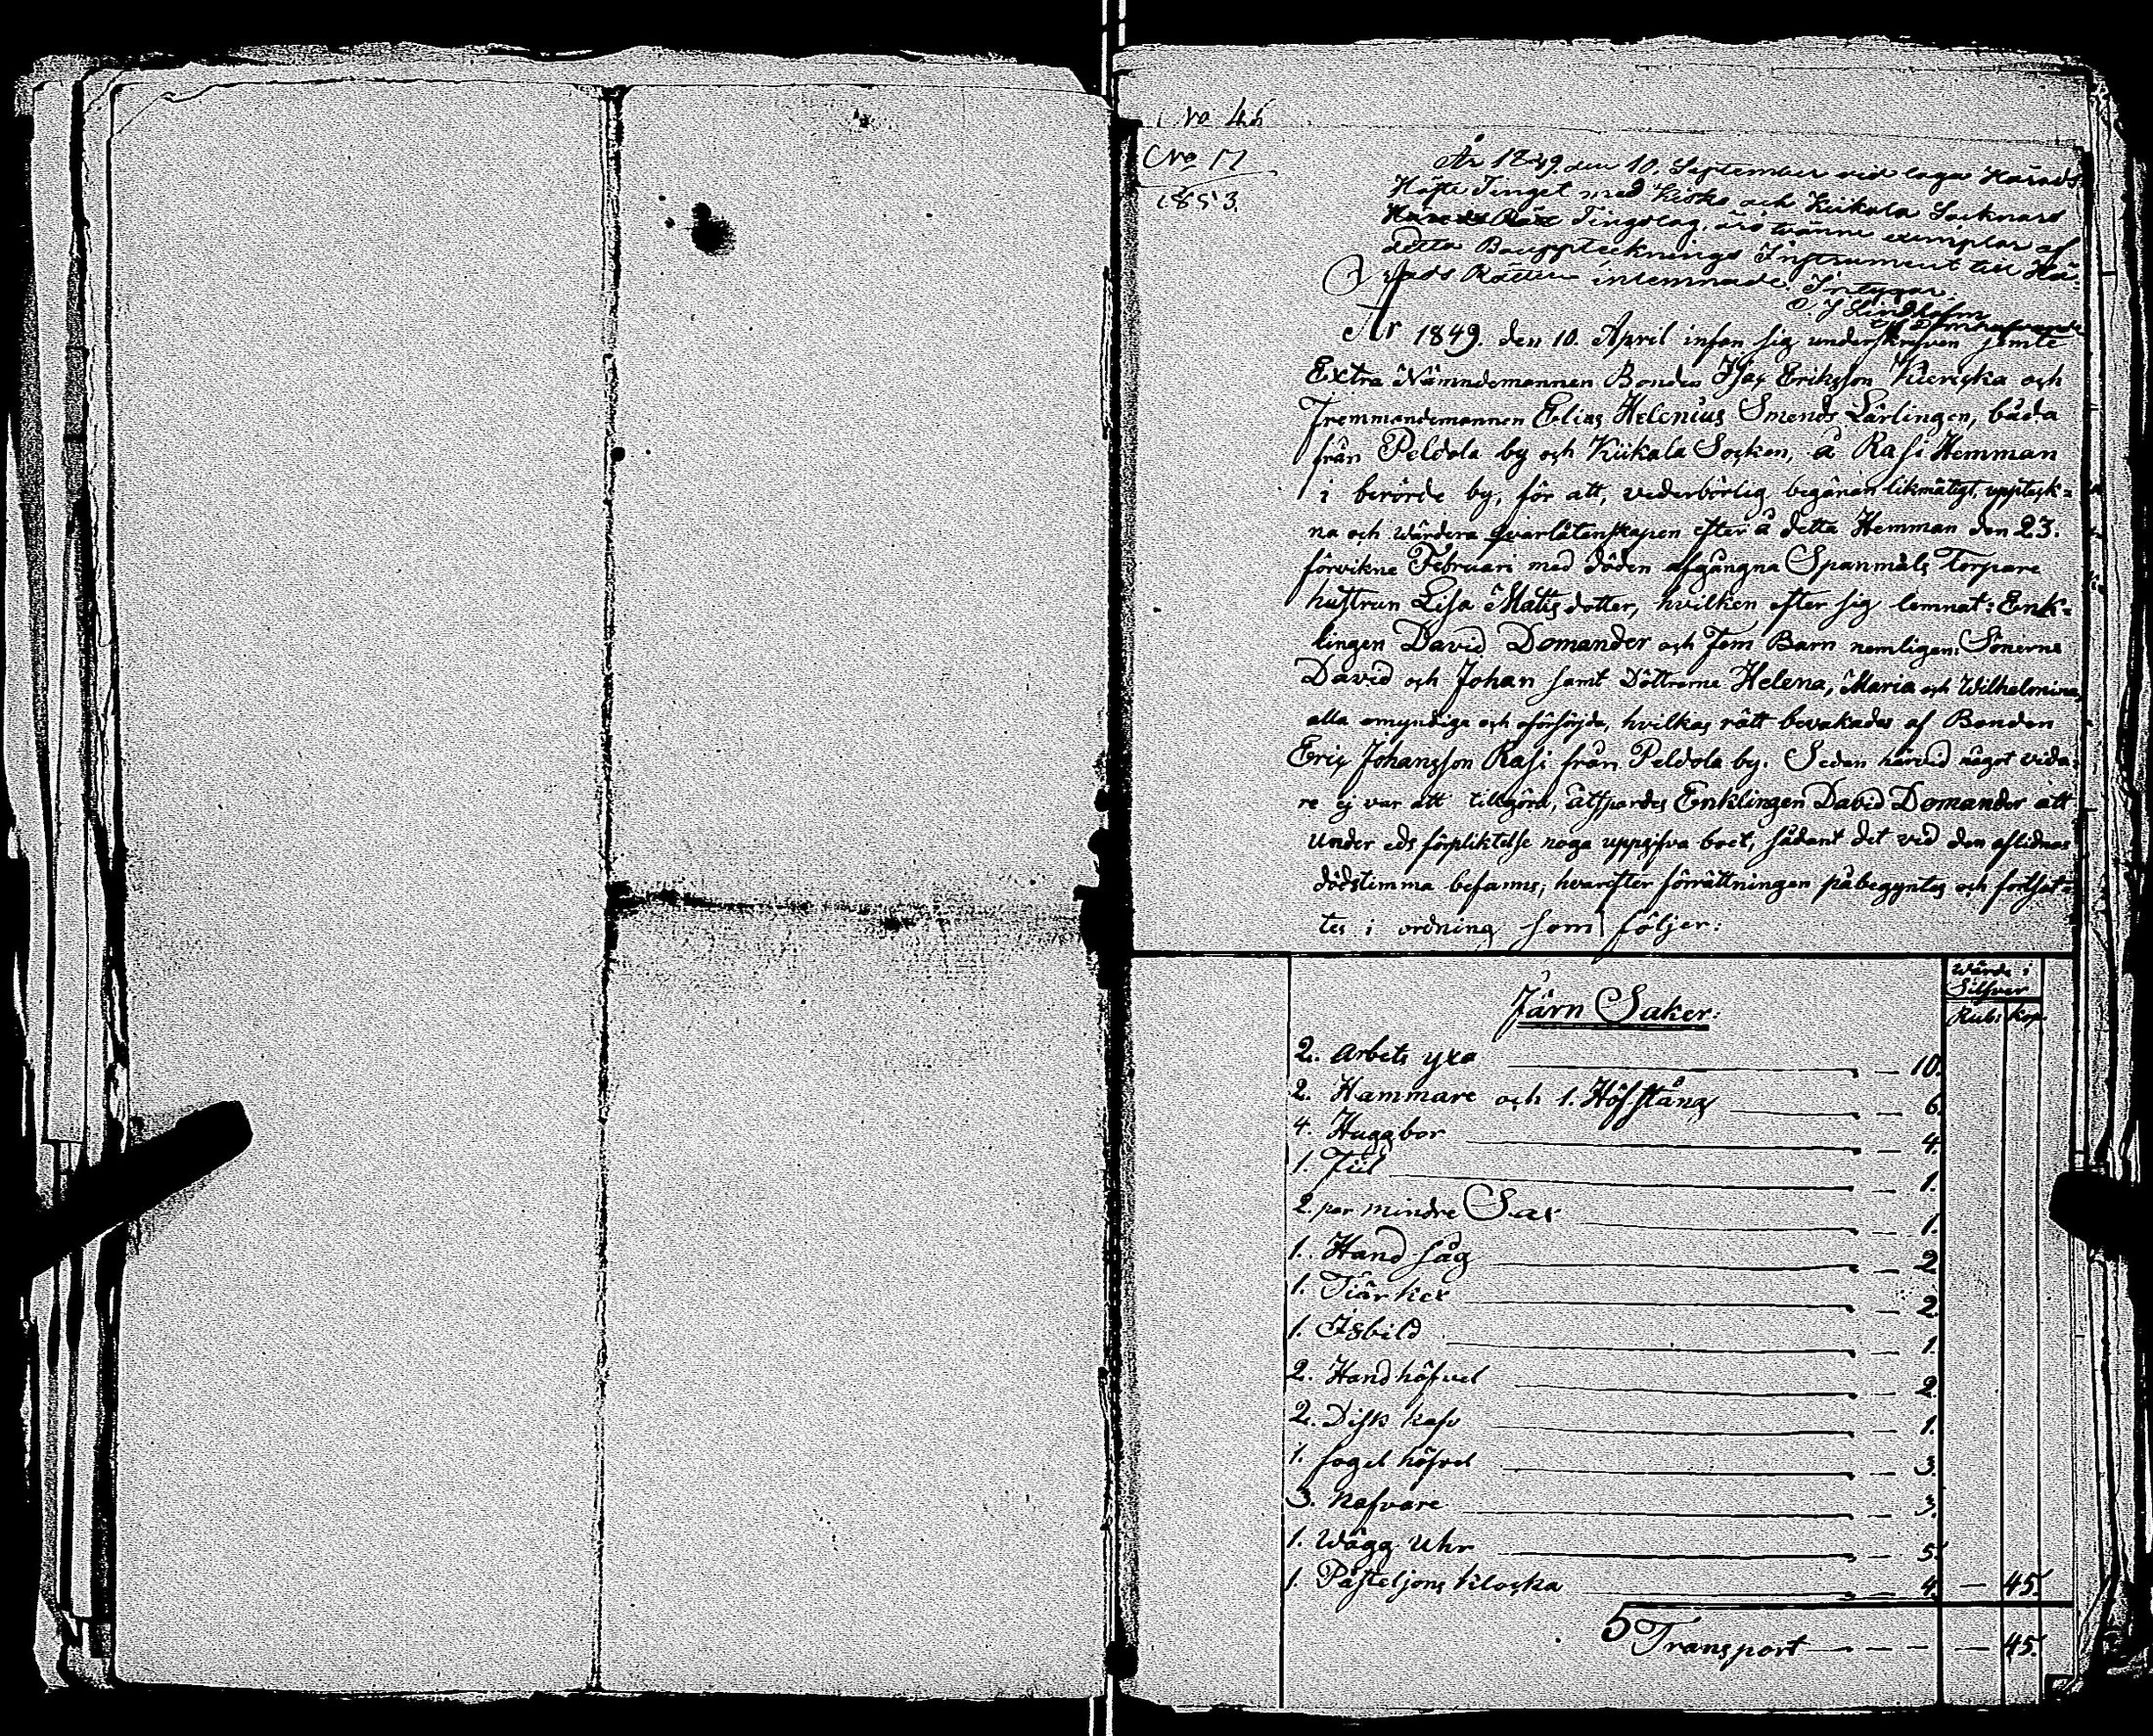 No 46
No 17
1853.
År 1849 den 10. September vid laga Härads
Höfte Tinget med Kisko och Kiikala Socknars
Tingslag, äro tvänne exemplar af
detta Bouppteknings Instrument till Hä-
rads Rätten inlemnade. Intygar.
År 1849. den 10. April infan sig underskrefven jemte
Extra Nämndemannen Bonden Isac Eriksson Kieriska och
Fremmandemannen Elias Helenius Smeds Lärlingen, båda
från Peldola by och Kiikala Socken, å Rasi Hemman
i berörde by, för att, vederbörlig begäran likmätigt, uppteck-
na och värdera qvarlåtenskapen efter å detta Hemman den 23.
förvikne Februari med döden afgångna Spanmåls Torpare
hustrun Lisa Matis dotter, hvilken efter sig lemnat: Enk-
lingen David Domander och fem Barn nemligen: Sönerne
David och Johan samt Döttrarne Helena, Maria och Wilhelmina,
alla omyndiga och oförsörjda, hvilkas rätt bevakades af Bonden
Eric Johansson Rasi från Peldola by. Sedan härvid något vida-
re ej var att tillgöra, åtspordes Enklingen David Domander att
under eds förpliktelse noga uppgifva boet, sådant det vid den aflidnas
dödstimma befanns, hvarefter förrättningen påbegyntes och fortsat-
tes i ordning som följer:
Värde i
Silfver
Rub: Kop
Järn Saker:
2. Arbets yxa — 10.
2. Hammare och 1. Hofstång — 6.
4. Huggbor — 4.
1. Fiil — 1.
2. par mindre Sax — 1.
1. Hand såg — 2.
1. — 2.
1. Isbild — 1.
2. Handhöfvel — 2.
2. Disk — 1.
1. fogel höfvel — 3.
3. Nafvare — 3.
1. Vägg Uhr — 5.
1. Påsteljons klocka — 4. — 45.
5 Transport — — 45.